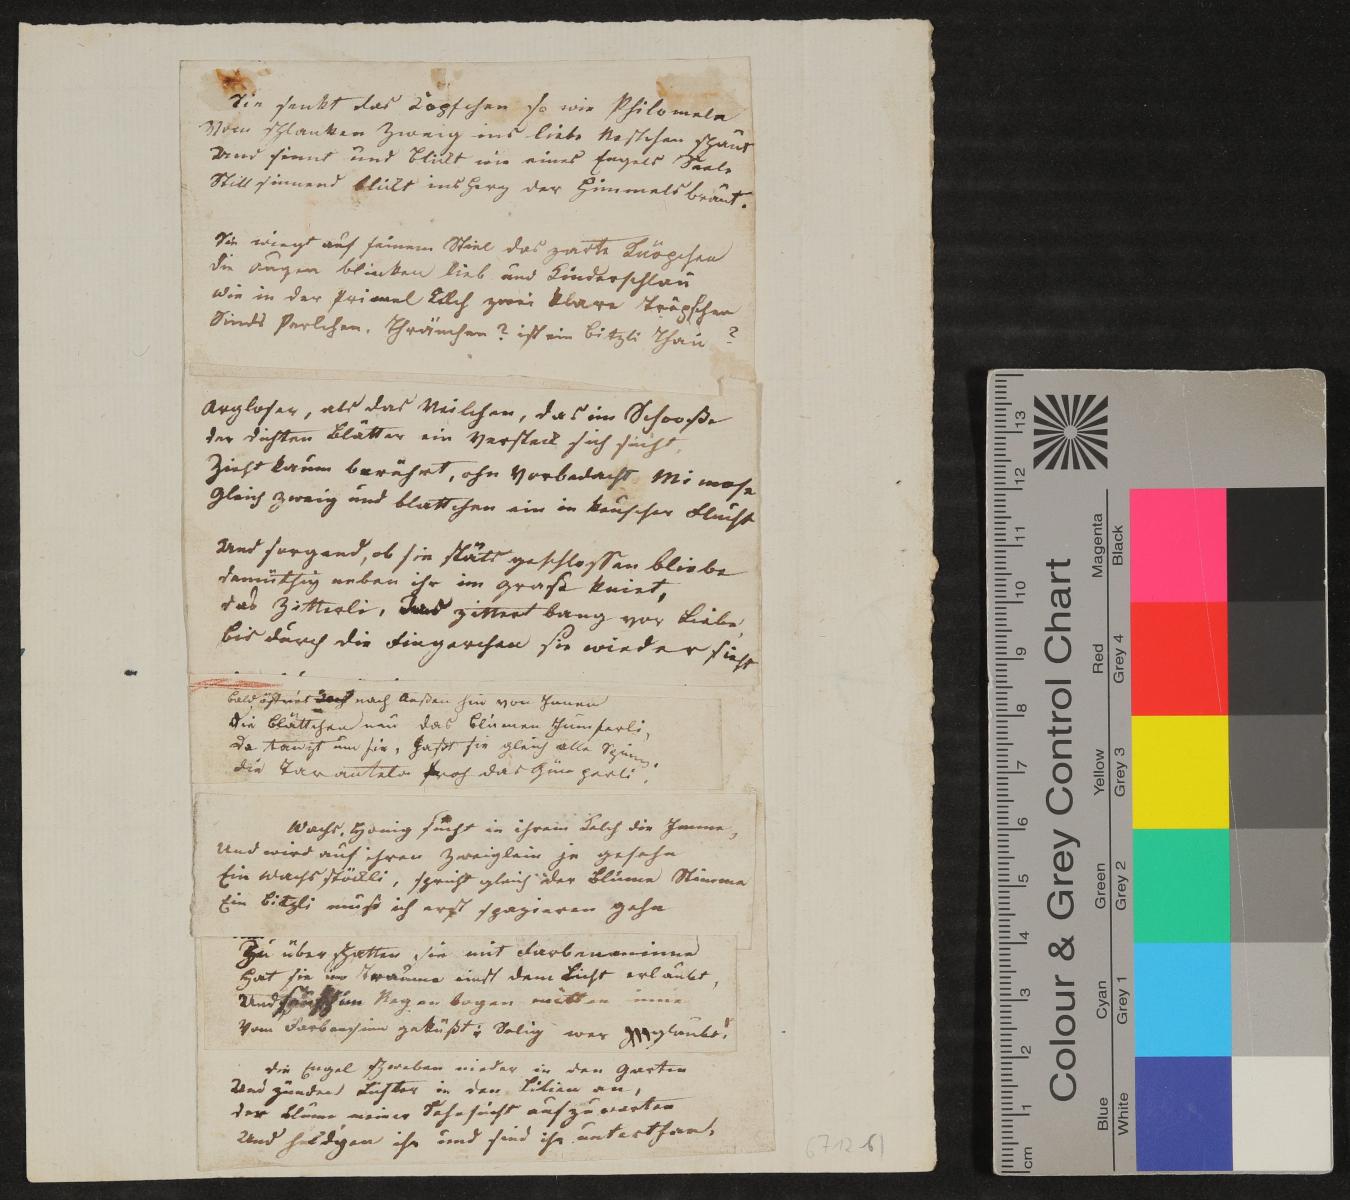 Sie senkt das Köpfchen so wie Philomela
Vom schlanken Zweig ins liebe Nestchen schaut
Und sinnt und blickt wie eines Engels Seele
Still sinnend blickt ins Herz der Himmelsbraut.
Sie wiegt auf seinem Stiel das zarte Knöspchen
die Augen blinken lieb und Kinderschlau
wie in der Primel Kelch zwei klare Tröpfchen
Sinds Perlchen, Thränchen? ist ein bitzli Thau?
Argloser, als das Veilchen, das im Schooße
der dichten Blätter ein Versteck sich sucht,
Zieht kaum berührt, ohn Vorbedacht Mimose
gleich Zweig und blattchen ein in keuscher Flucht
Und sorgend, ob sie stäts geschlossen bliebe
demüthig neben ihr im grase kniet,
das Zitterli, das zittert bang vor Liebe,
bis durch die Fingerchen sie wieder sieht
bald öffnet nach Außen hin von Innen
die blättchen neu das blumen Jümferli,
da tanzt um sie, haßt sie gleich alle Spinn.
die Tarantela froh das Gümperli.
Wachs, Honig sucht in ihrem Kelch die Imme,
Und wird auf ihren Zweiglein je gesehn
Ein Wachsstöckli, spricht gleich der Blume Stimme
Ein bitzli muß ich erst spazieren gehn
Zu überschatten sie mit Farbenminne
Hat sie im Traume einst dem Licht erlaubt,
Und im Regenbogen mitten inne
Vom Farbensinn geküßt; Selig wer glaubt!
die Engel schweben nieder in den Garten
Und zünden Lichter in den Lilien an,
der Blume meiner Sehnsucht aufzuwarten
Und huldigen ihr und sind ihr unterthan,
Colour & Grey Control Chart
Blue Cyan Green Yellow Red Magenta
White Grey 1 Grey 2 Grey 3 Grey 4 Black
cm 1 2 3 4 5 6 7 8 9 10 11 12 13